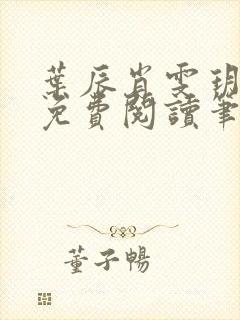 葉辰肖雯玥
免費閱讀筆
董子暢